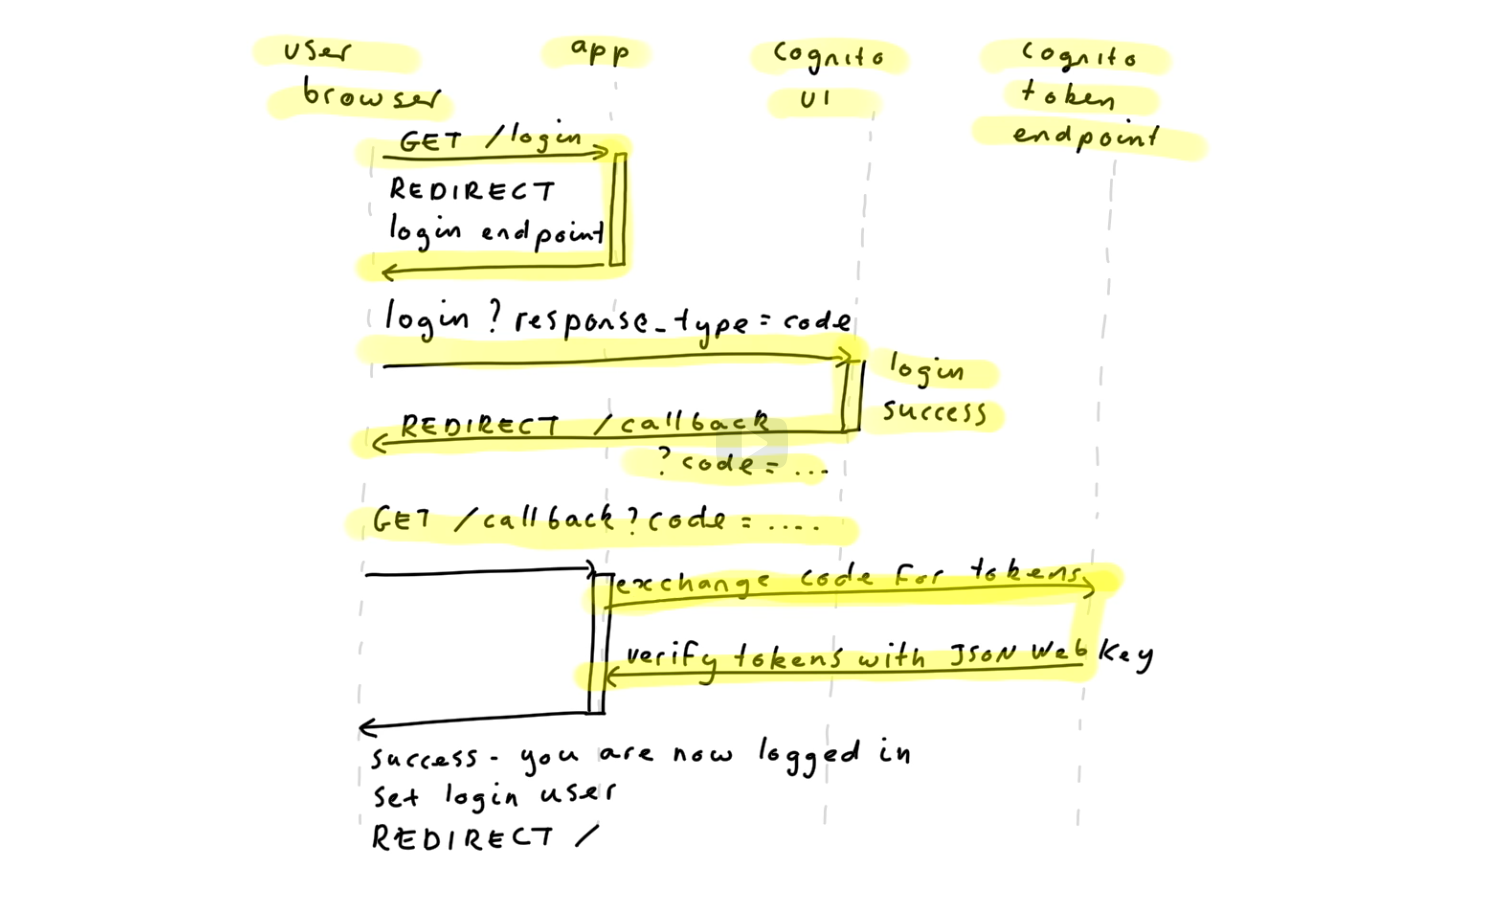 user
browser
app
cognito
UI
cognito
token
endpoint
GET /login
REDIRECT
login endpoint
login ? response_type = code
login
success
REDIRECT /callback
? code = ...
GET /callback ? code = ....
exchange code for tokens
verify tokens with JSON Web Key
success - you are now logged in
set login user
REDIRECT /